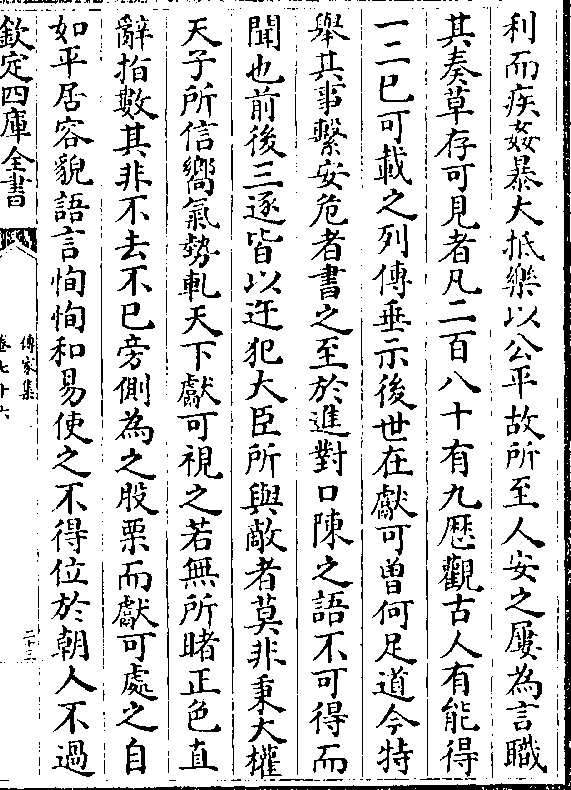 利而疾姦暴大抵樂以公平故所至人安之屢為言職
其奏草存可見者凡二百八十有九歷觀古人有能得
一二已可載之列傳垂示後世在獻可曽何足道今特
舉其事繫安危者書之至於進對口陳之語不可得而
聞也前後三逐皆以迕犯大臣所與敵者莫非秉大權
天子所信嚮氣勢軋天下獻可視之若無所睹正色直
辭指數其非不去不已旁側為之股栗而獻可處之自
如平居容貌語言恂恂和易使之不得位於朝人不過
欽定四庫全書
傳家集
卷七十六
二十三